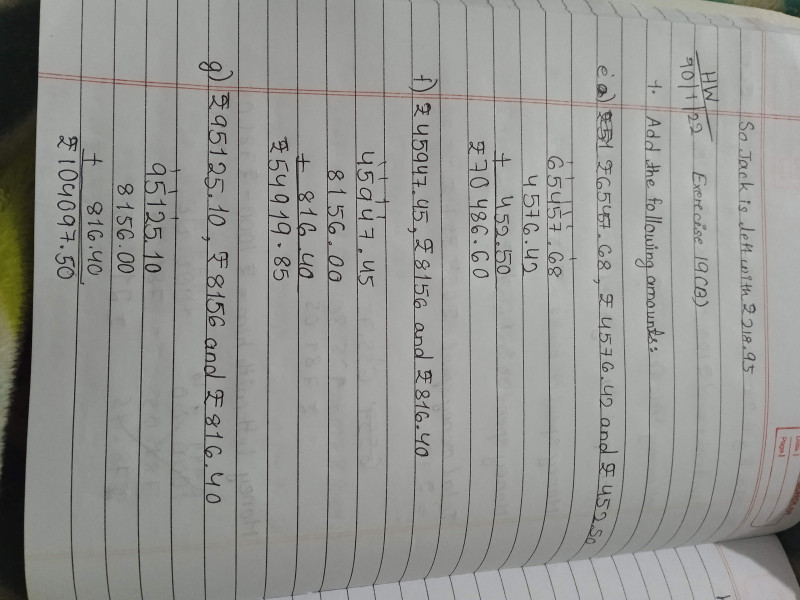 So Jack is left with ₹218.95
HW
Exercise 19(B)
1. Add the following amounts:
e) ₹65457.68, ₹4576.42 and ₹452.50
65457.68
4576.42
+ 452.50
₹70486.60
f) ₹45947.45, ₹8156 and ₹816.40
45947.45
8156.00
+ 816.40
₹54919.85
g) ₹95125.10, ₹8156 and ₹816.40
95125.10
8156.00
+ 816.40
₹104097.50